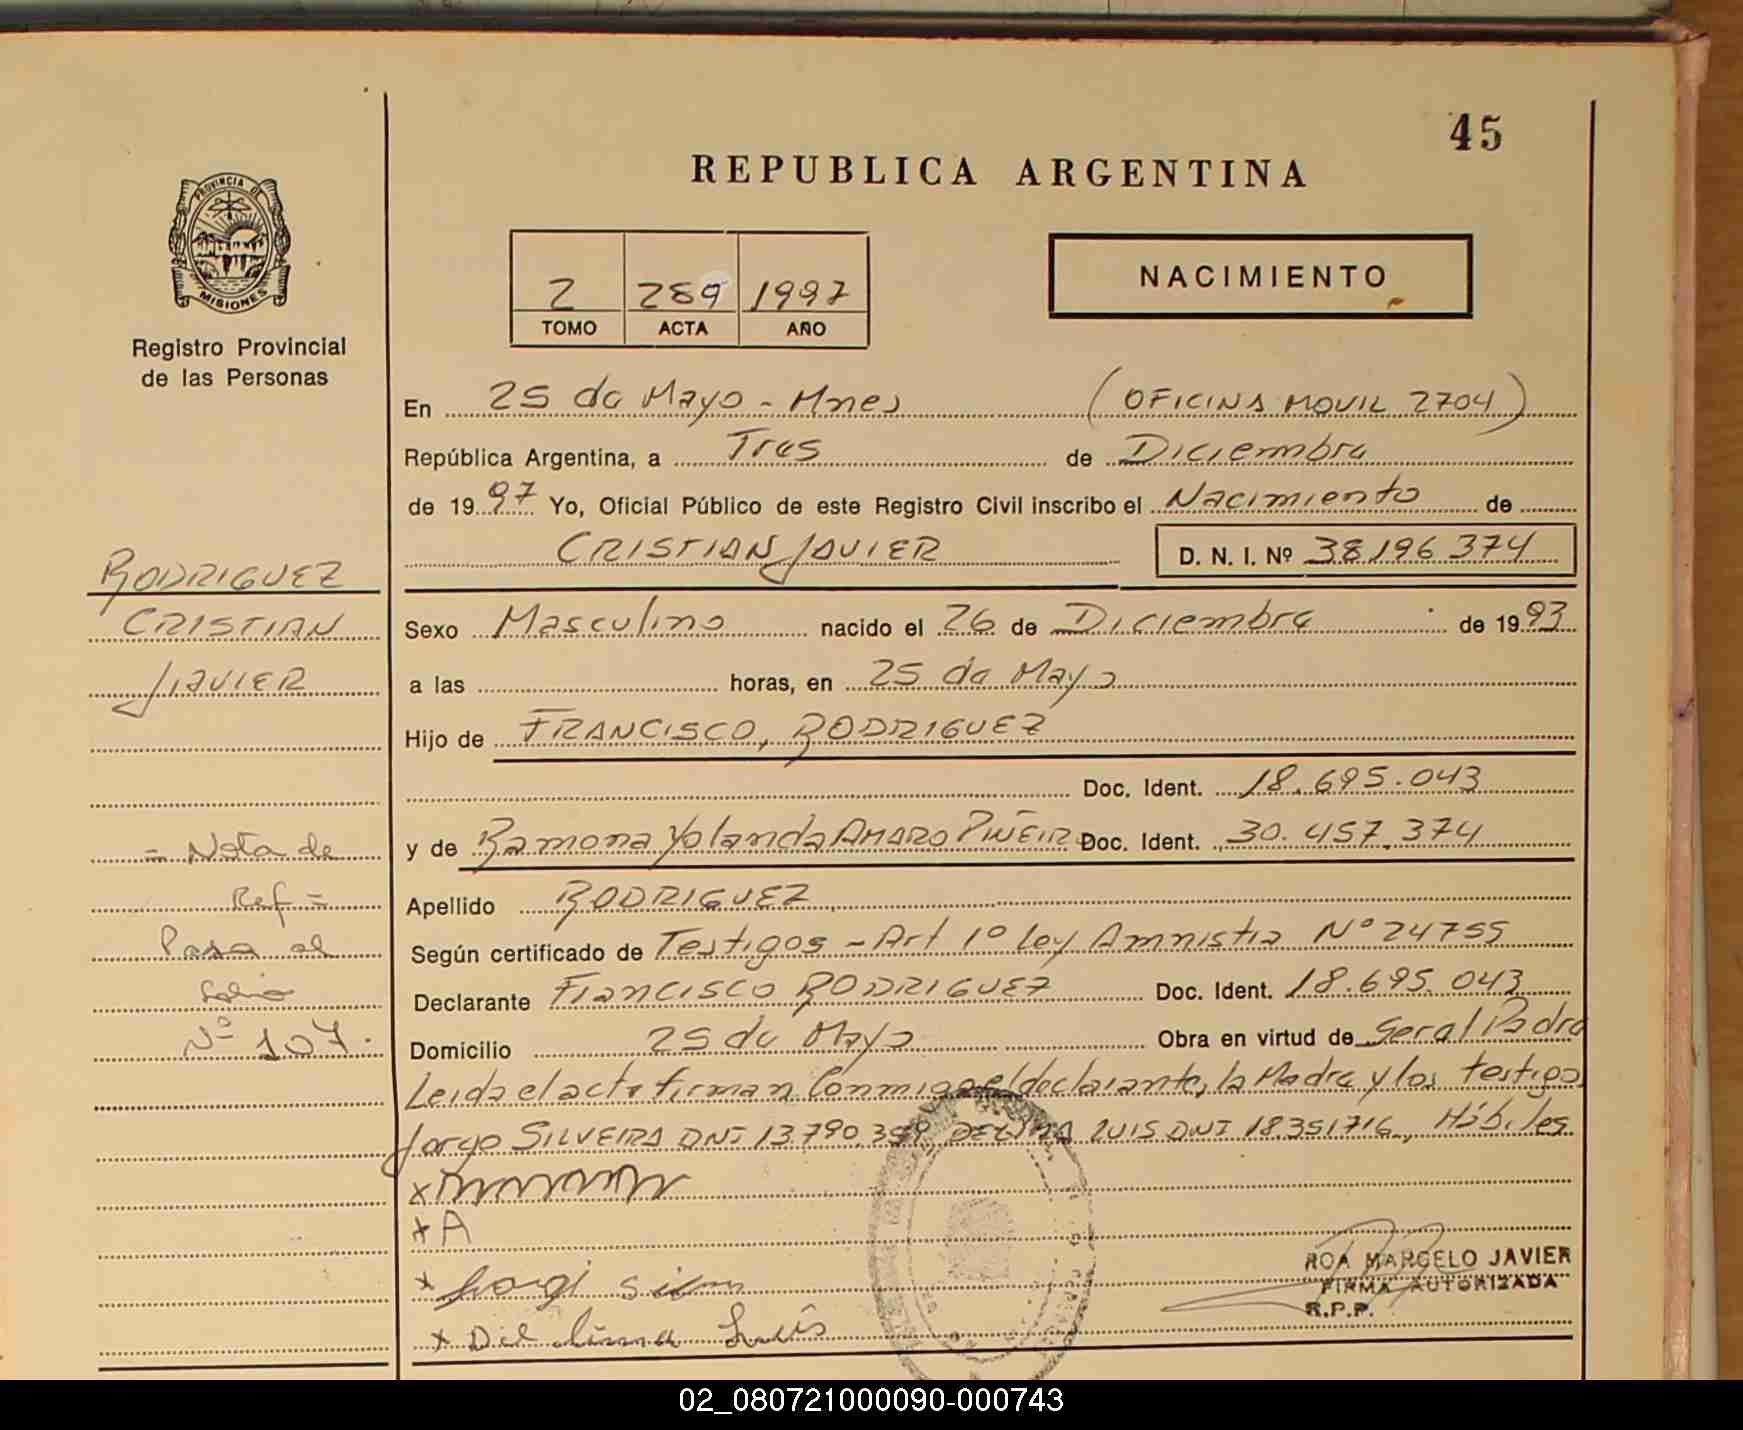 45
REPUBLICA ARGENTINA
PROVINCIA DE
MISIONES
Registro Provincial
de las Personas
2 289 1997
TOMO ACTA AÑO
NACIMIENTO
En 25 de Mayo - Mnes (OFICINA MOVIL 2704)
República Argentina, a Tres de Diciembre
de 1997 Yo, Oficial Público de este Registro Civil inscribo el Nacimiento de
CRISTIAN JAVIER D. N. I. Nº 38196374
RODRIGUEZ
CRISTIAN
JAVIER
Sexo Masculino nacido el 26 de Diciembre de 1993
a las horas, en 25 de Mayo
Hijo de FRANCISCO, RODRIGUEZ
Doc. Ident. 18.695.043
y de Ramona Yolanda AMARO PIÑEIRO Doc. Ident. 30.457.374
Apellido RODRIGUEZ
Según certificado de Testigos - Art 1º Ley Amnistia Nº 24755
Declarante Francisco RODRIGUEZ Doc. Ident. 18.695.043
Domicilio 25 de Mayo Obra en virtud de Ser al Padre
Leida el acta firman Conmigo el declarante, la Madre y los testigos
Jorge SILVEIRA DNI 13.790.359 DELIMA LUIS DNI 18351716, Hábiles
= Nota de
Ref =
Pasa al
folio
Nº 107.
x
x A
x Jorgi
x De lima Luis
ROA MARCELO JAVIER
FIRMA AUTORIZADA
R.P.P.
02_080721000090-000743